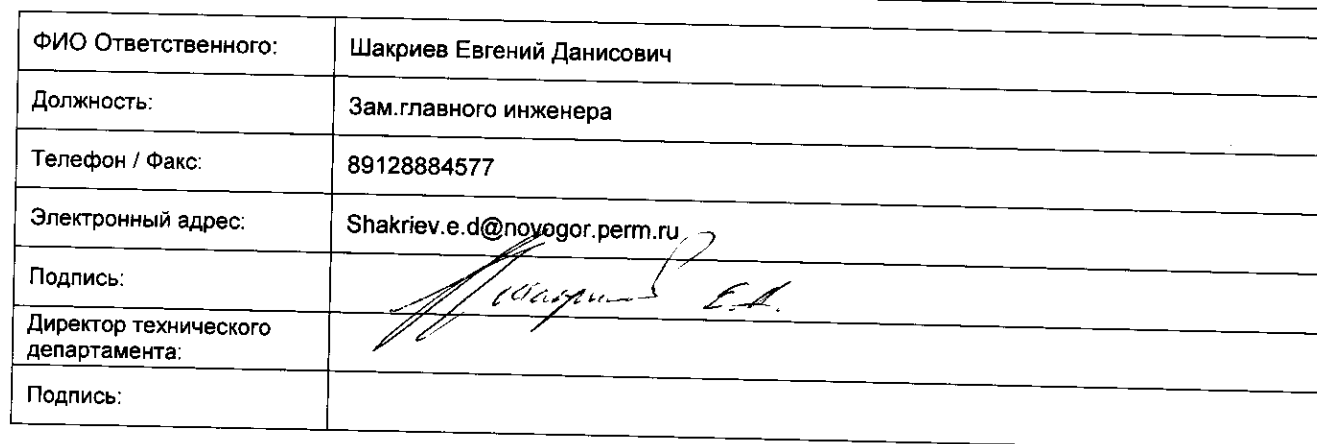 ФИО Ответственного: Шакриев Евгений Данисович
Должность: Зам.главного инженера
Телефон / Факс: 89128884577
Электронный адрес: Shakriev.e.d@novogor.perm.ru
Подпись: Шакриев Е.Д.
Директор технического
департамента:
Подпись: